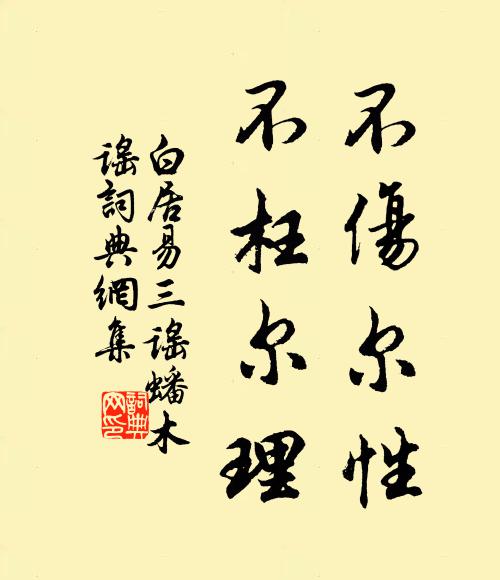 不傷尔性
不枉尔理
白居易三谣蟠木
谣詞典網集
詞典
网印